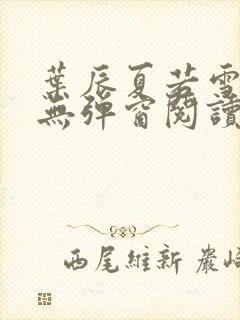 葉辰夏若雪
無彈窗閱讀
西尾維新 嚴崎